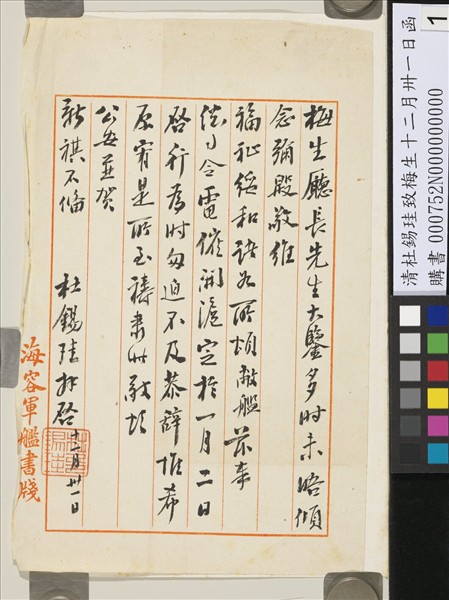 梅生廳長先生大鑒多時未晤傾
念彌殷敬維
福祉綏和諸如所頌敝艦茲奉
總司令電催開滬定於一月二日
啓行為時匆迫不及恭辭惟希
原宥是所至禱肅此敬頌
公安並賀
新祺不備
杜錫珪拜啓
十二月卅一日
海容軍艦書牋
清杜錫珪致梅生十二月卅一日函
購書 000752N000000000
1